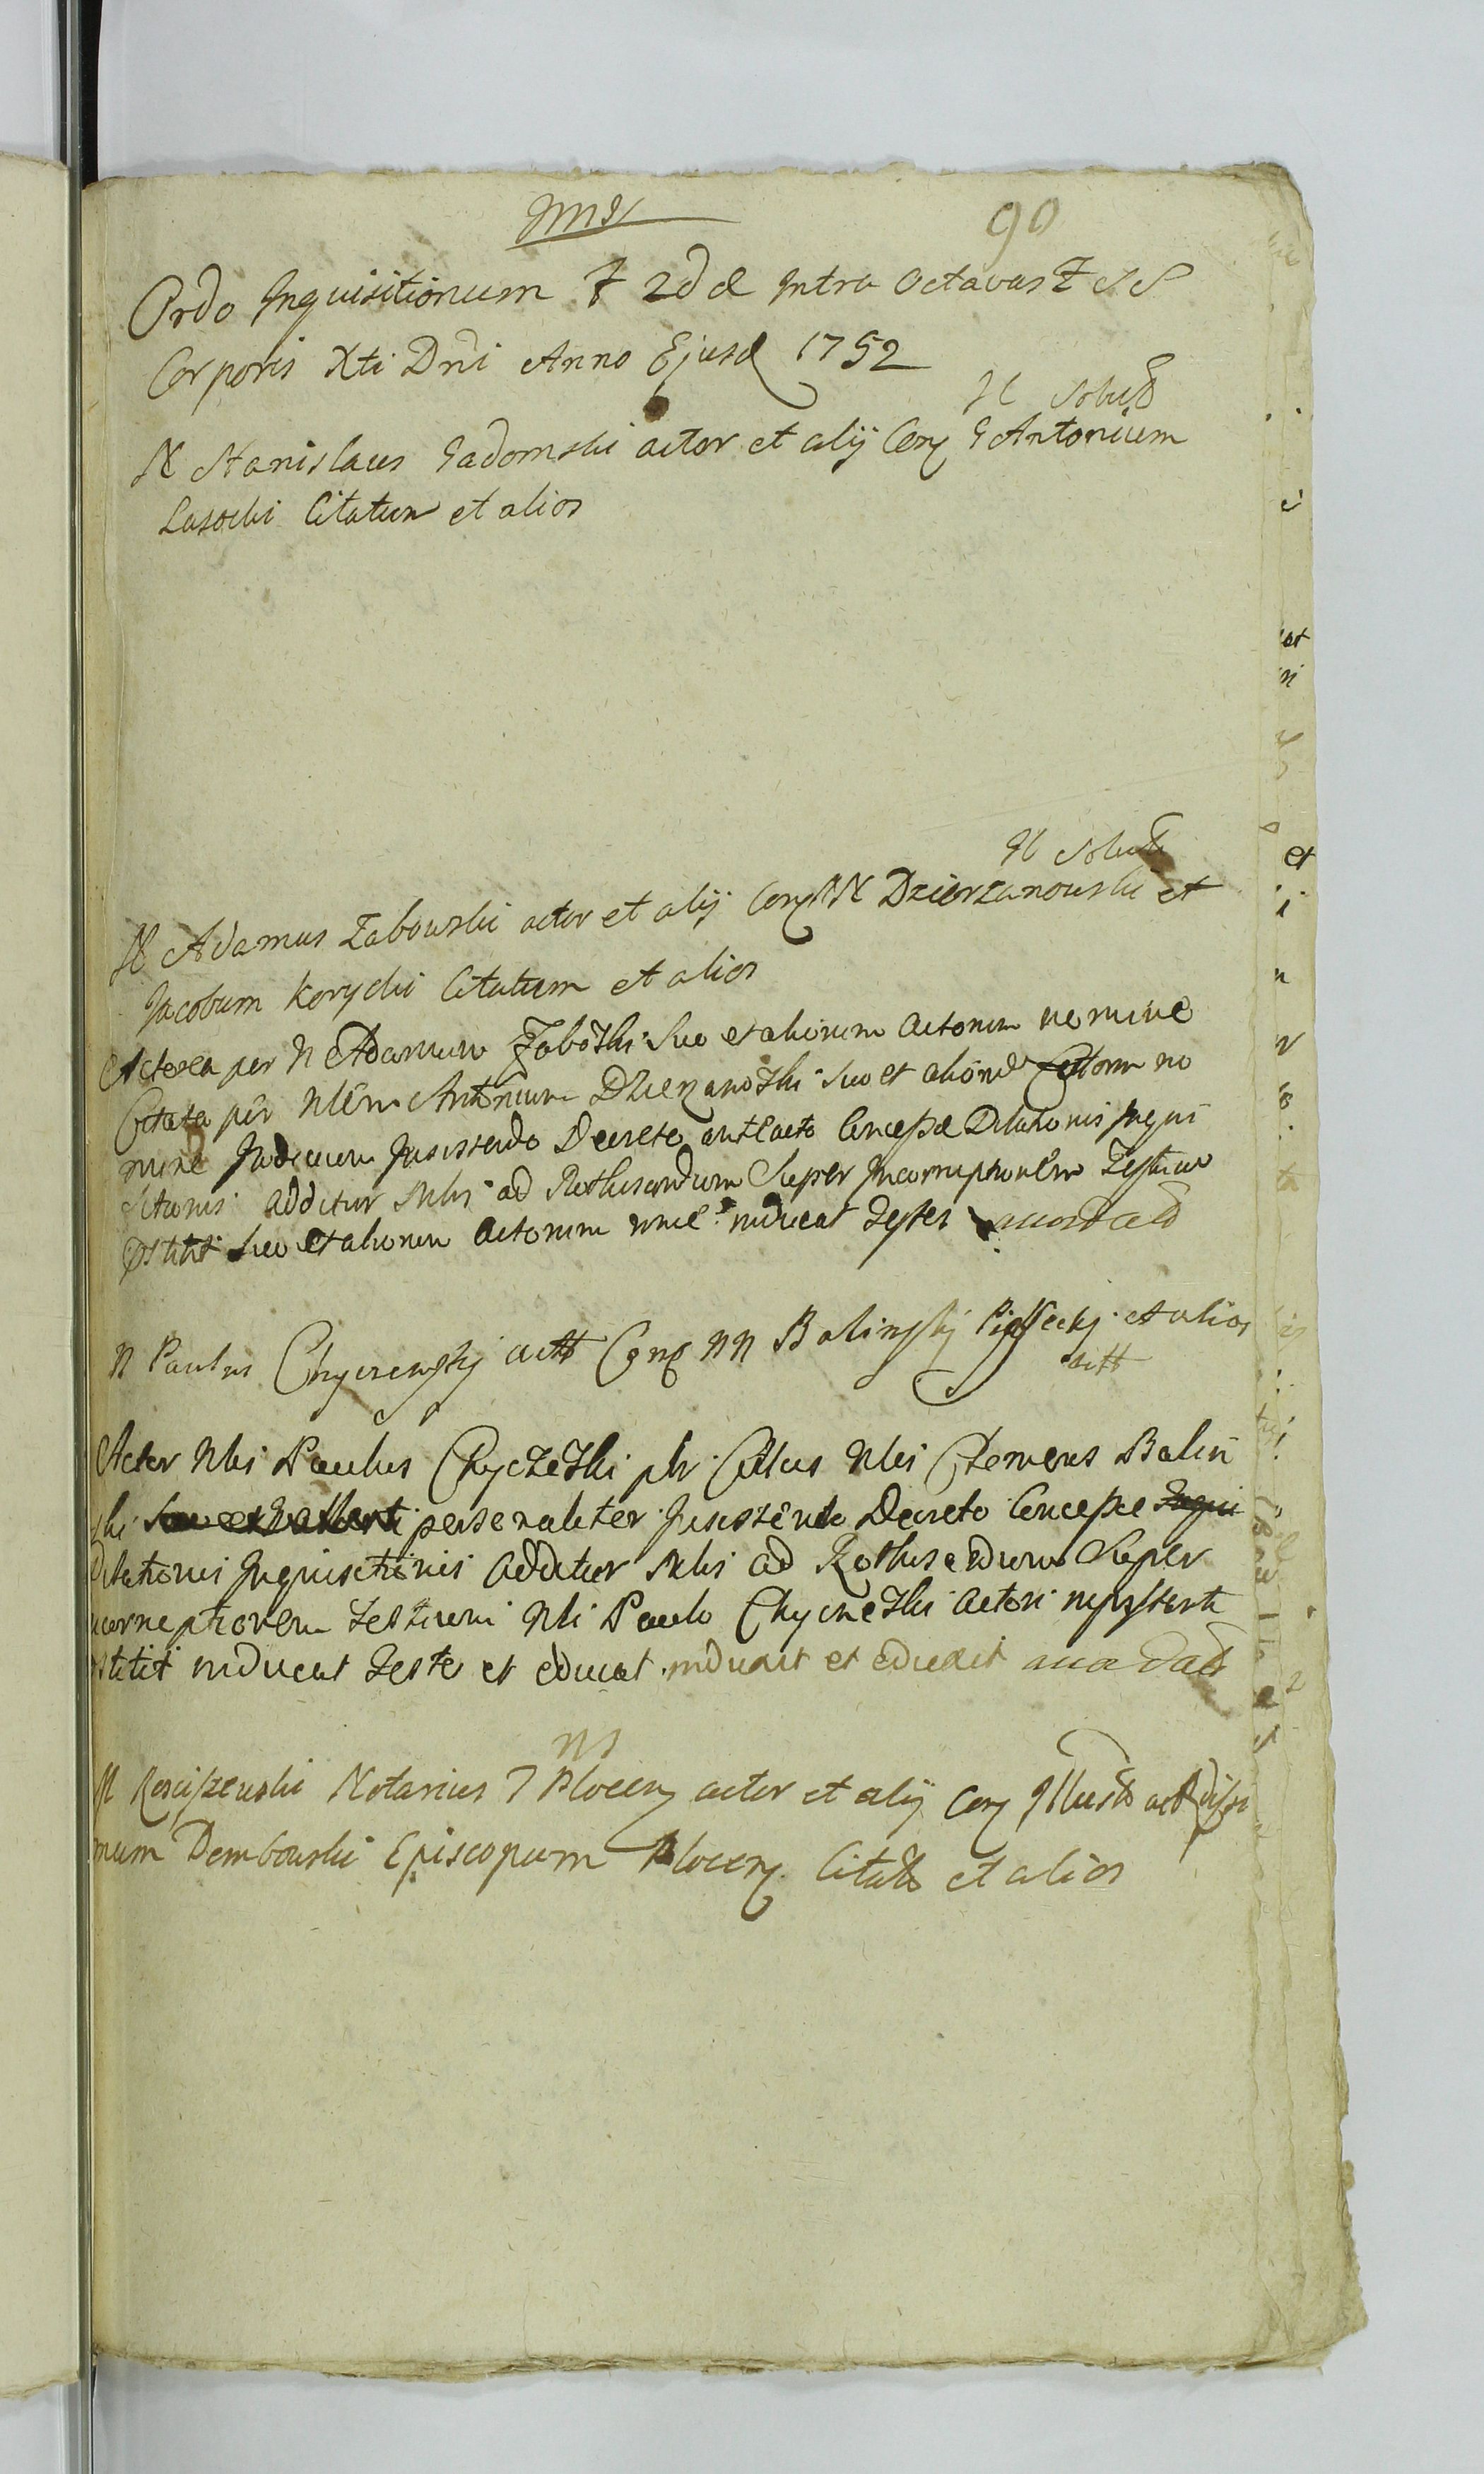 90
Ordo Inquisitionum F 2dæ Intra Octavas F SS
Corporis Xti Dni Anno Ejusd 1752
N Solut
N Stanislaus Gadomski actor et alij Con G Antonium
Lasocki Citatum et alios
N Solut
N Adamus Zabowski actor et alij Con NN Dzierzanowski et
Jacobum Korycki Citatum et alios
Actorea per N Adamum Zaboski suo et aliorum actorum nomine
Citata per Nlem Antonium Dzierzanoski suo et aliorum Cittorum no
mine Judicium Insistendo Decreto anteacto Conceptæ Dilationis Inqui
sitionis additur Nlis ad Rothisandum Super Incorruptionem Testium
suo et aliorum actorum nne inducat Testes
N Paulus Chyczewskj actt Con NN Balinskj Piaseckj et alios
citt
Actor Nlis Paulus Chyczeski ptr Cittus Nlis Clemens Balin
ski personaliter Insistendo Decreto Conceptæ Inqui
Dilationis Inquisitionis additur Nlis ad Rothisandum Super
incorruptionem Testium Nli Paulo Chyczeski actori
inducat Testes et educat induxit et eduxit
N Kosciszewski Notarius T Plocen actor et alij Con Illustr
mum Dembowski Episcopum Plocen Citat et alios